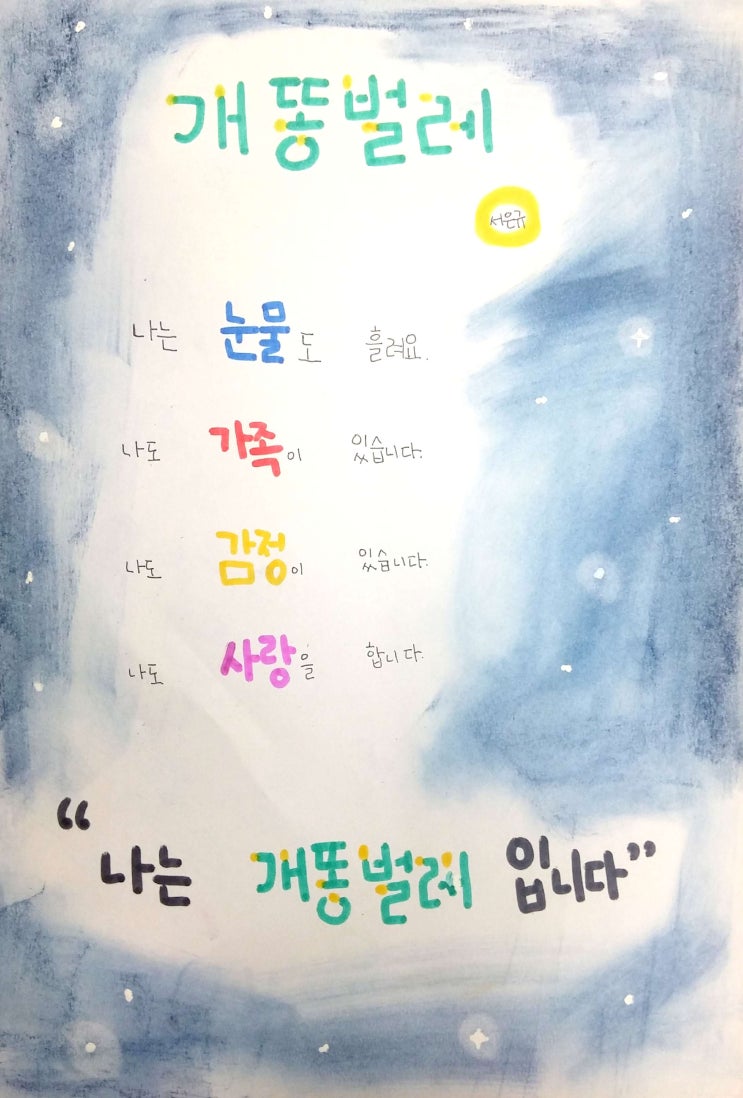 개똥벌레
서은규
나는 눈물도 흘려요.
나도 가족이 있습니다.
나도 감정이 있습니다.
나도 사랑을 합니다.
“나는 개똥벌레 입니다”